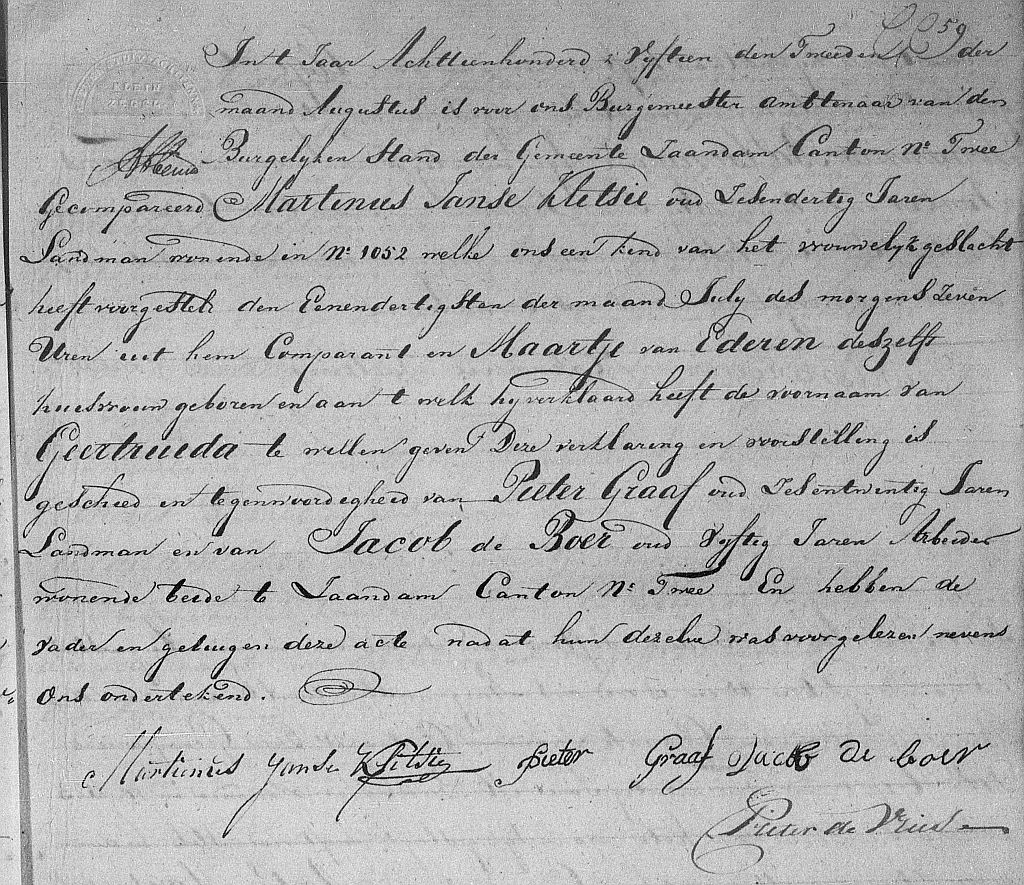 59
In't Jaar Achttienhonderd & Vyftien den Tweeden der
KLEIN ZEGEL
maand Augustus is voor ons Burgemeester Ambtenaar van den
Burgelyken Stand der Gemeente Zaandam Canton No Twee
Gecompareerd Martinus Janse Kletsie oud Zesendertig Jaren
Landman wonende in No 1052 welke ons een kind van het vrouwelyk geslacht
heeft voorgesteld den Eenendertigsten der maand July des morgens Zeven
Uren uit hem Comparant en Maartje van Ederen deszelfs
huisvrouw geboren en aan 't welk hy verklaard heeft de voornaam van
Geertruida te willen geven Deze verklaring en voorstelling is
gescheed en tegenwoordigheid van Pieter Graaf oud Zesentwintig Jaren
Landman en van Jacob de Boer oud Vyftig Jaren Arbeider
wonende beide te Zaandam Canton No Twee En hebben de
vader en getuigen deze acte nadat hun dezelve was voorgelezen nevens
Ons ondertekend.
Martienus Janse Kletsie Pieter Graaf Jacob de boer
Pieter de Vries